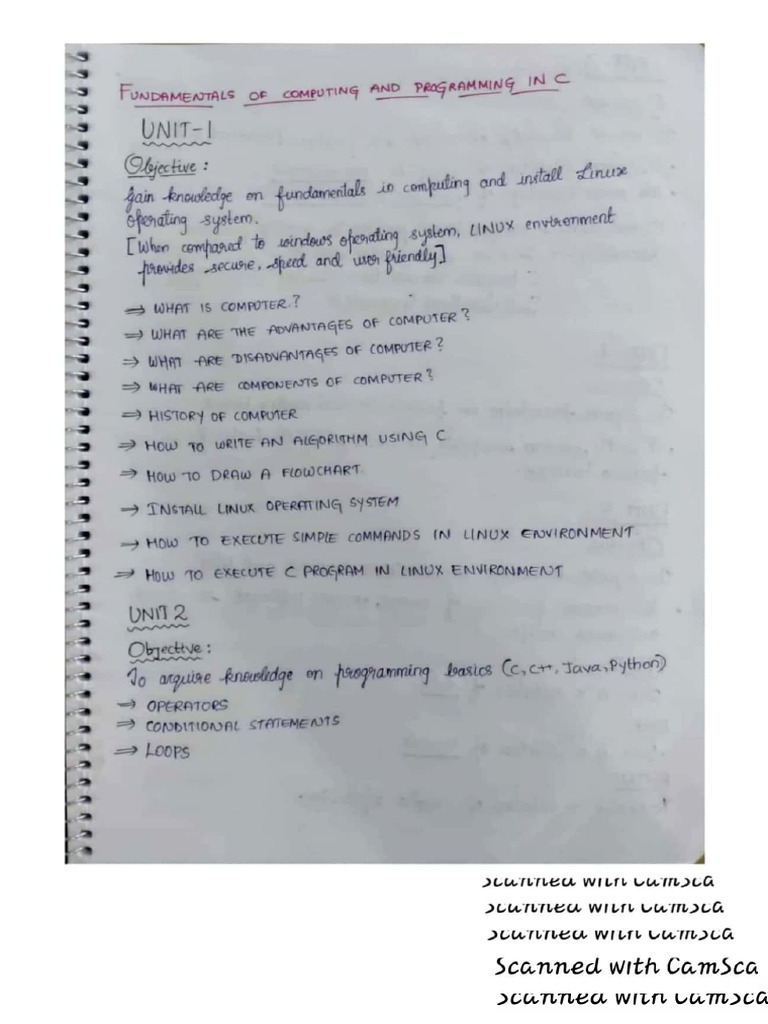 FUNDAMENTALS OF COMPUTING AND PROGRAMMING IN C
UNIT-1
Objective:
Gain knowledge on fundamentals in computing and install Linux
operating system.
[When compared to windows operating system, LINUX environment
provides secure, speed and user friendly]
⇒ WHAT IS COMPUTER?
⇒ WHAT ARE THE ADVANTAGES OF COMPUTER?
⇒ WHAT ARE DISADVANTAGES OF COMPUTER?
⇒ WHAT ARE COMPONENTS OF COMPUTER?
⇒ HISTORY OF COMPUTER
⇒ HOW TO WRITE AN ALGORITHM USING C
⇒ HOW TO DRAW A FLOWCHART.
⇒ INSTALL LINUX OPERATING SYSTEM
⇒ HOW TO EXECUTE SIMPLE COMMANDS IN LINUX ENVIRONMENT
⇒ HOW TO EXECUTE C PROGRAM IN LINUX ENVIRONMENT
UNIT 2
Objective:
To acquire knowledge on programming basics (C, C++, Java, Python)
⇒ OPERATORS
⇒ CONDITIONAL STATEMENTS
⇒ LOOPS
Scanned with CamSca
Scanned with CamSca
Scanned with CamSca
Scanned with CamSca
Scanned with CamSca